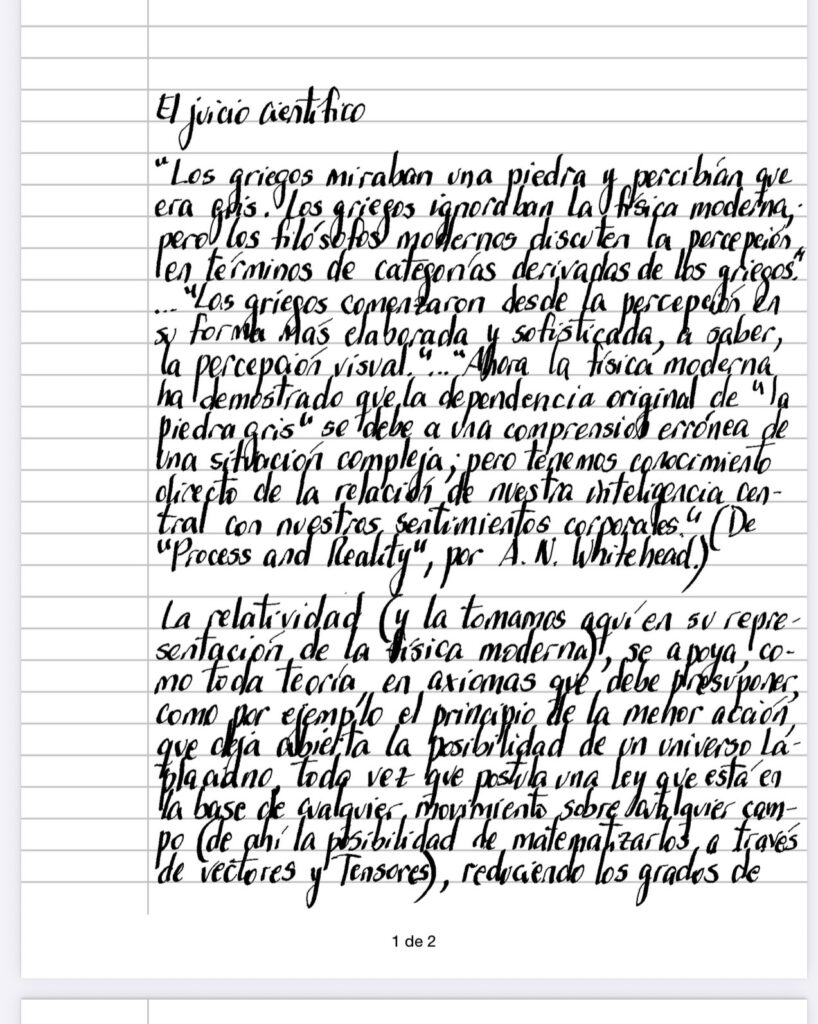 El juicio científico
"Los griegos miraban una piedra y percibían que
era gris. Los griegos ignoraban la física moderna;
pero los filósofos modernos discuten la percepción
en términos de categorías derivadas de los griegos."
... "Los griegos comenzaron desde la percepción en
su forma más elaborada y sofisticada, a saber,
la percepción visual."..."Ahora la física moderna
ha demostrado que la dependencia original de "la
piedra gris" se debe a una comprensión errónea de
una situación compleja; pero tenemos conocimiento
directo de la relación de nuestra inteligencia cen-
tral con nuestros sentimientos corporales." (De
"Process and Reality", por A. N. Whitehead.)
La relatividad (y la tomamos aquí en su repre-
sentación de la física moderna), se apoya, co-
mo toda teoría, en axiomas que debe presuponer,
como por ejemplo el principio de la menor acción,
que deja abierta la posibilidad de un universo la-
placiano, toda vez que postula una ley que está en
la base de cualquier movimiento sobre cualquier cam-
po (de ahí la posibilidad de matematizarlos a través
de vectores y Tensores), reduciendo los grados de
1 de 2